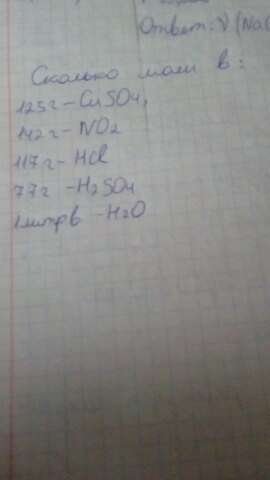 Ответ: ν (Na
Сколько моли в:
125г – CuSO4,
142г – NO2
117г – HCl
77г – H2SO4
1 литр в – H2O